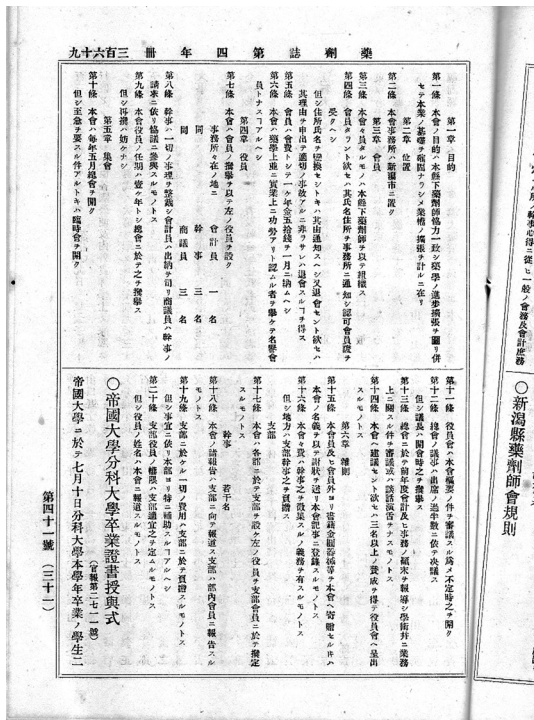 九十六百三 卌 年四第 誌劑藥
第一章 目的
第一條 本會ノ目的ハ本縣下藥劑師協力一致シ藥學ノ進歩擴張ヲ圖リ併
セテ本業ノ基礎ヲ確固ナラシメ業權ノ擴張ヲ計ルニ在リ
第二章 位置
第二條 本會事務所ハ新潟市ニ置ク
第三章 會員
第三條 本會々員タルモノハ本縣下藥劑師ヲ以テ組織ス
第四條 會員タラント欲セハ其氏名住所ヲ事務所ニ通知シ認可會員證ヲ
受クヘシ
但シ住所氏名ヲ變換セシトキハ其由通知スヘシ又退會セント欲セハ
其理由ヲ申出テ適切ノ事故アルニ非ラサレハ退會スルコヲ得ス
第五條 會員ハ會費トシテ一ケ年金五拾錢ヲ一月ニ納ムヘシ
第六條 本會ハ藥學上並ニ實業上ニ功勞アリト認ムル者ヲ擧ケテ名譽會
員トナスコアルヘシ
第四章 役員
第七條 本會ハ會員ノ撰擧ヲ以テ左ノ役員ヲ設ク
事務所在ノ地ニ 會計員 一名
同 幹事 三名
同 商議員 三名
第八條 幹事ハ一切ノ事理ヲ整裁シ會計員ハ出納ヲ司リ商議員ハ幹事ノ
請求ニ依リ協議ニ參與スルモノトス
第九條 本會役員ノ任期ハ壹ケ年トシ總會ニ於テ之ヲ撰擧ス
但シ再撰ハ妨ケナシ
第五章 集會
第十條 本會ハ毎年五月總會ヲ開ク
但シ至急ヲ要スル件アルトキハ臨時會ヲ開ク
第十一條 役員會ハ本會樞要ノ件ヲ審議スル爲メ不定時之ヲ開ク
第十二條 總會ノ議事ハ出席ノ過半數ニ依テ决議ス
但シ議長ハ開會時之ヲ撰擧ス
第十三條 總會ニ於テ前年度會計及ヒ事務ノ顛末ヲ報導シ學術幷ニ業務
上ニ關スル件ヲ審議或ハ談話演舌ヲナスモノトス
第十四條 本會ヘ建議セント欲セハ三名以上ノ賛成ヲ得テ役員會ヘ呈出
スルモノトス
第六章 雜則
第十五條 本會員及ヒ會員外ヨリ書籍金圓器械等ヲ本會ヘ寄贈セルトキハ
本會ノ名義ヲ以テ謝狀ヲ送リ本會記事ニ登錄スルモノトス
第十六條 本會々費ハ幹事之ヲ徴集スルノ義務ヲ有スルモノトス
但シ地方ハ支部幹事之ヲ負擔ス
支部
第十七條 本會ハ各郡ニ於テ支部ヲ設ケ左ノ役員ヲ支部會員ニ於テ撰定
スルモノトス
幹事 若干名
第十八條 本會ノ諸報告ハ支部ニ向テ報道ス支部ハ部內會員ニ報告スル
モノトス
第十九條 支部ニ於ケル一切ノ費用ハ支部ニ於テ負擔スルモノトス
但シ事宜ニ依リ本部ヨリ特ニ補助スルコアルヘシ
第二十條 支部役員ノ權限ハ支部適宜之ヲ定ムルモノトス
但シ役員ノ姓名ハ本會ニ報道スルモノトス
○帝國大學分科大學卒業證書授與式
（官報第二七一一號）
帝國大學ニ於テ七月十日分科大學本學年卒業ノ學生ニ
第四十一號 （三十二）
幹事心得ニ從ヒ一般ノ會務及會計庶務
○新潟縣藥劑師會規則